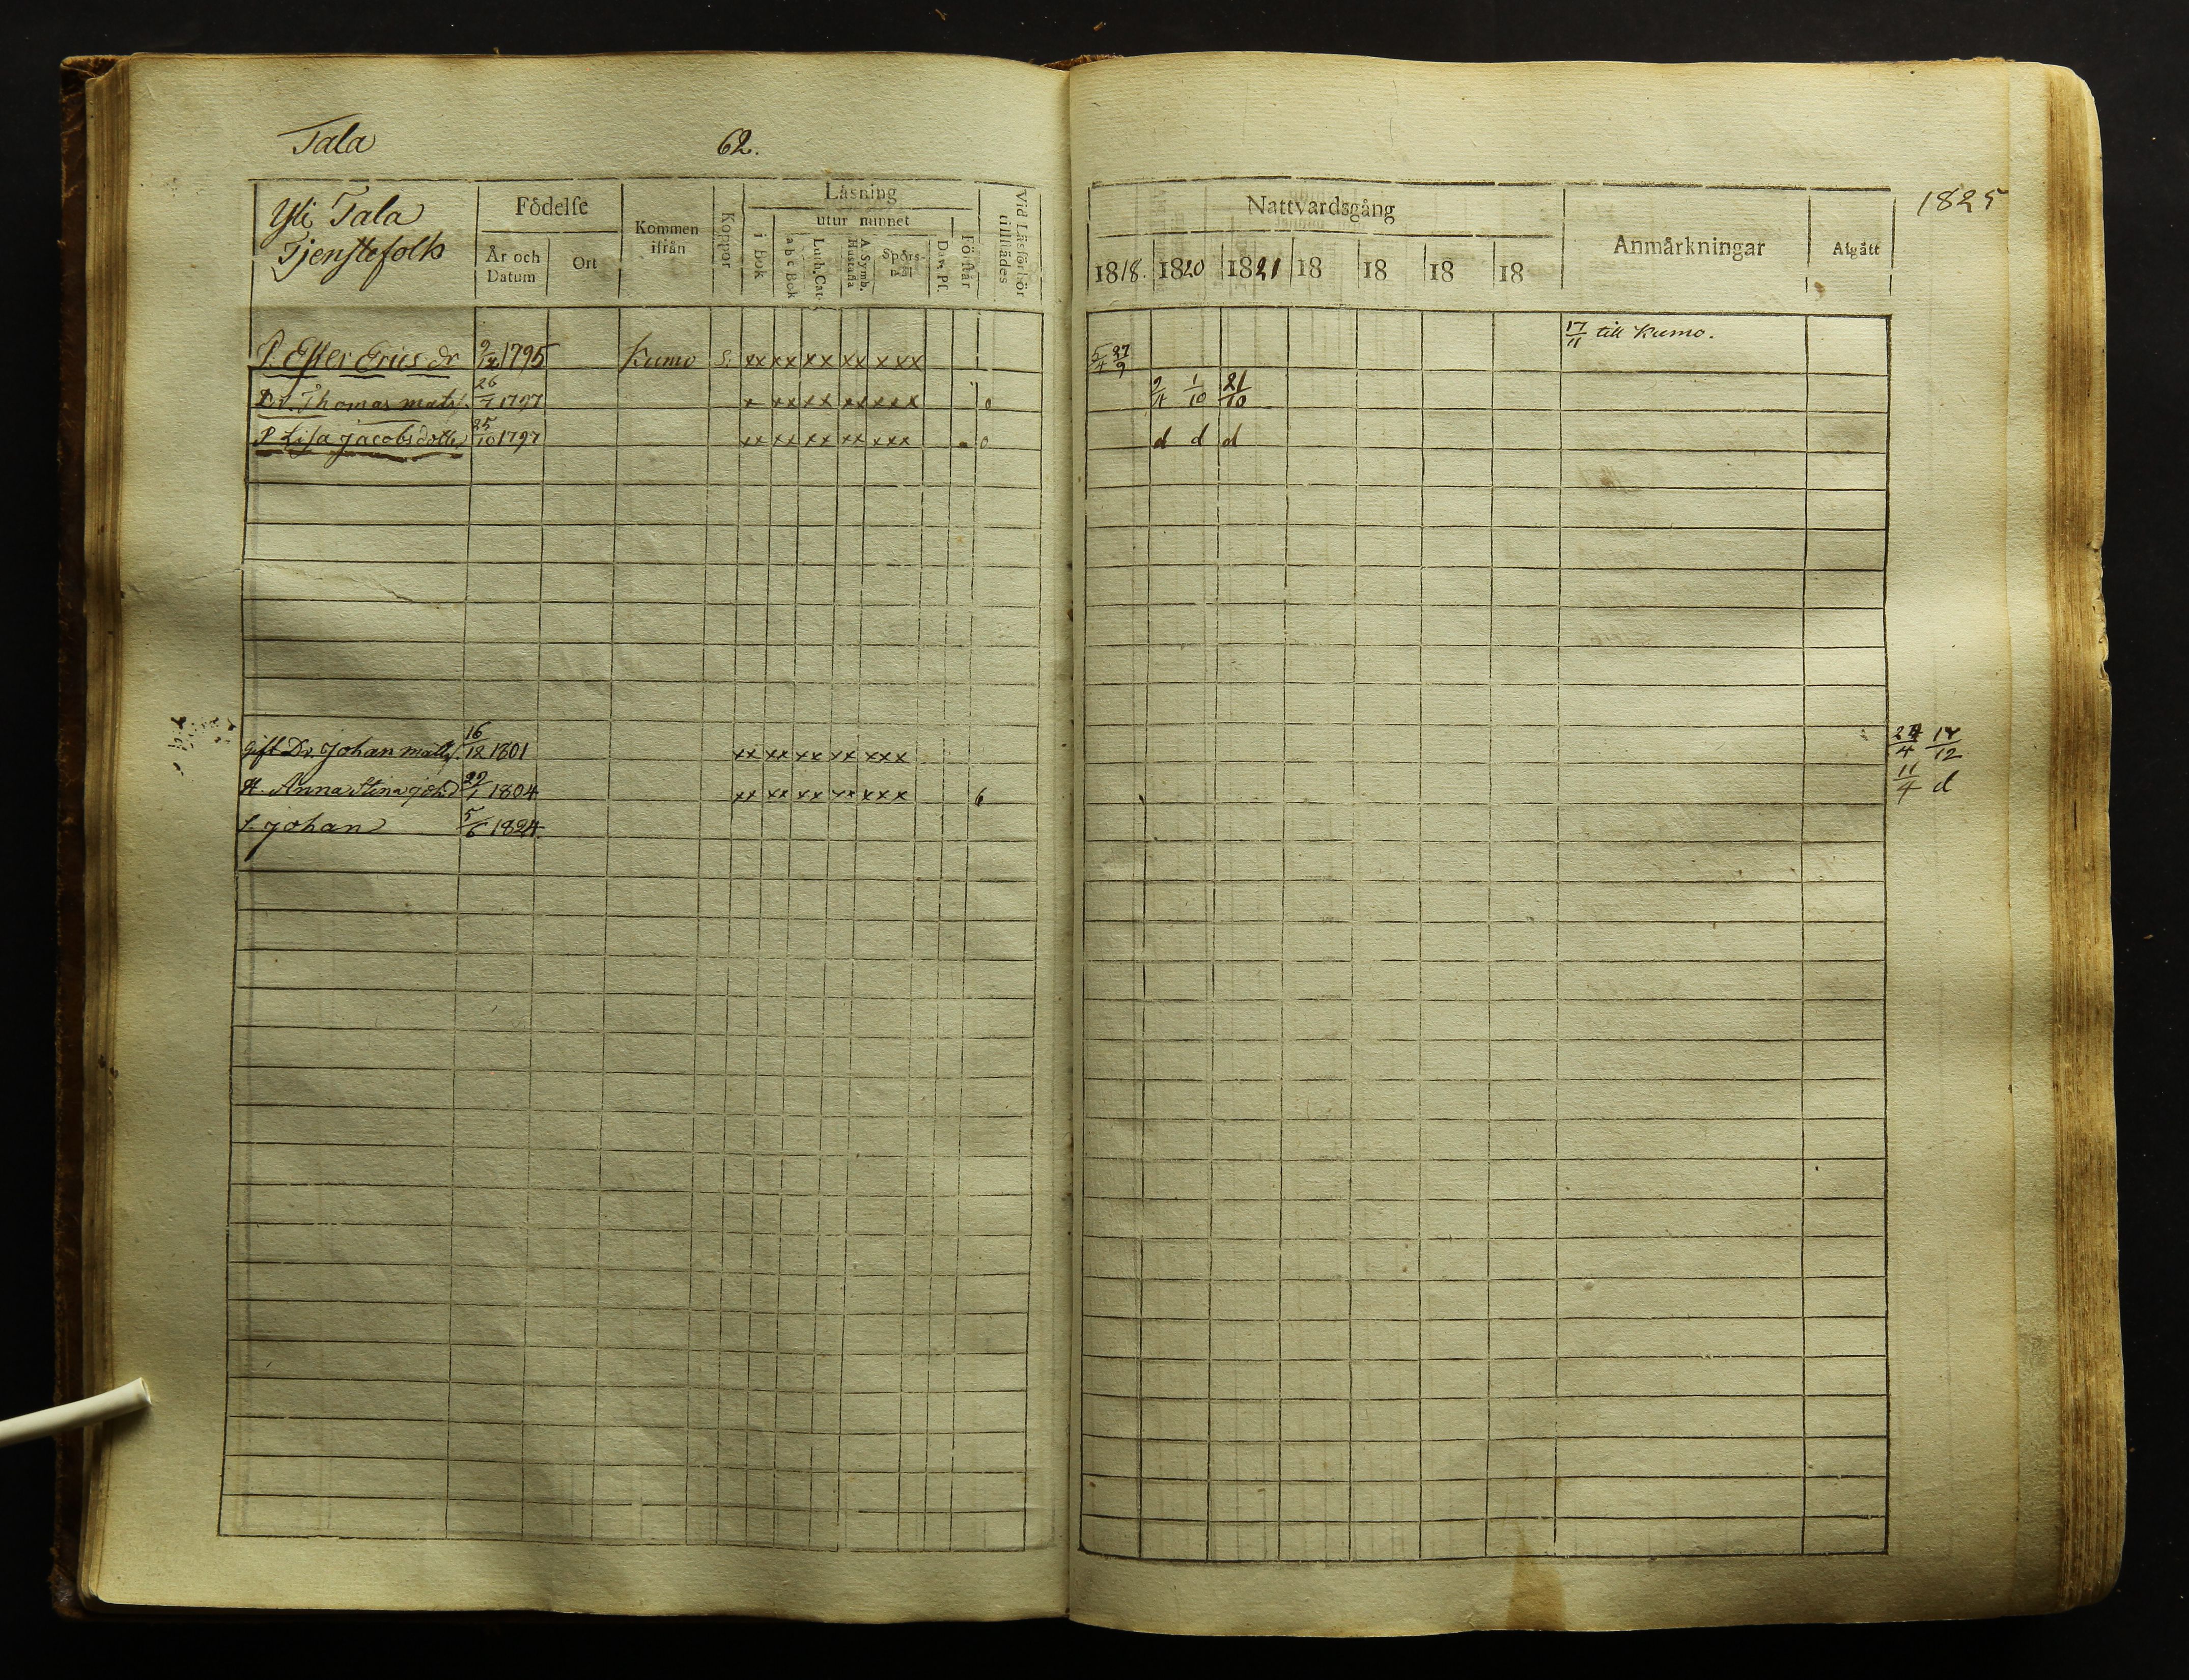 Tala 62.
Yli Tala
Tjenstefolk
Födelse
År och Datum
Ort
Kommen ifrån
Koppor
Läsning
i Bok
utur minnet
a b c Bok
Luth. Cat.
A. Symb. Hustafla
Spörsmål
Dav. Ps.
Förstår
Vid Läsförhör tillstädes
Nattvardsgång
1818. 1820 1821 18 18 18 18
Anmärkningar
Afgått
1825
P. Ester Erics dr 1795 Kumo S. xx xx xx xx xxx 5/4 27/9 17/11 till Kumo.
Dr. Thomas mats. 26/7 1797 x xx xx xx xxx 0 2/4 1/10 21/10
P Lisa Jacobsdotter 25/10 1797 xx xx xx xx xxx 0 d d d
gift Dr. Johan matts. 16/12 1801 xx xx xx xx xxx 24/4 14/12
H. Anna Stina Joh.d 1804 xx xx xx xx xxx 6 11/4 d
S. Johan 5/6 1824.